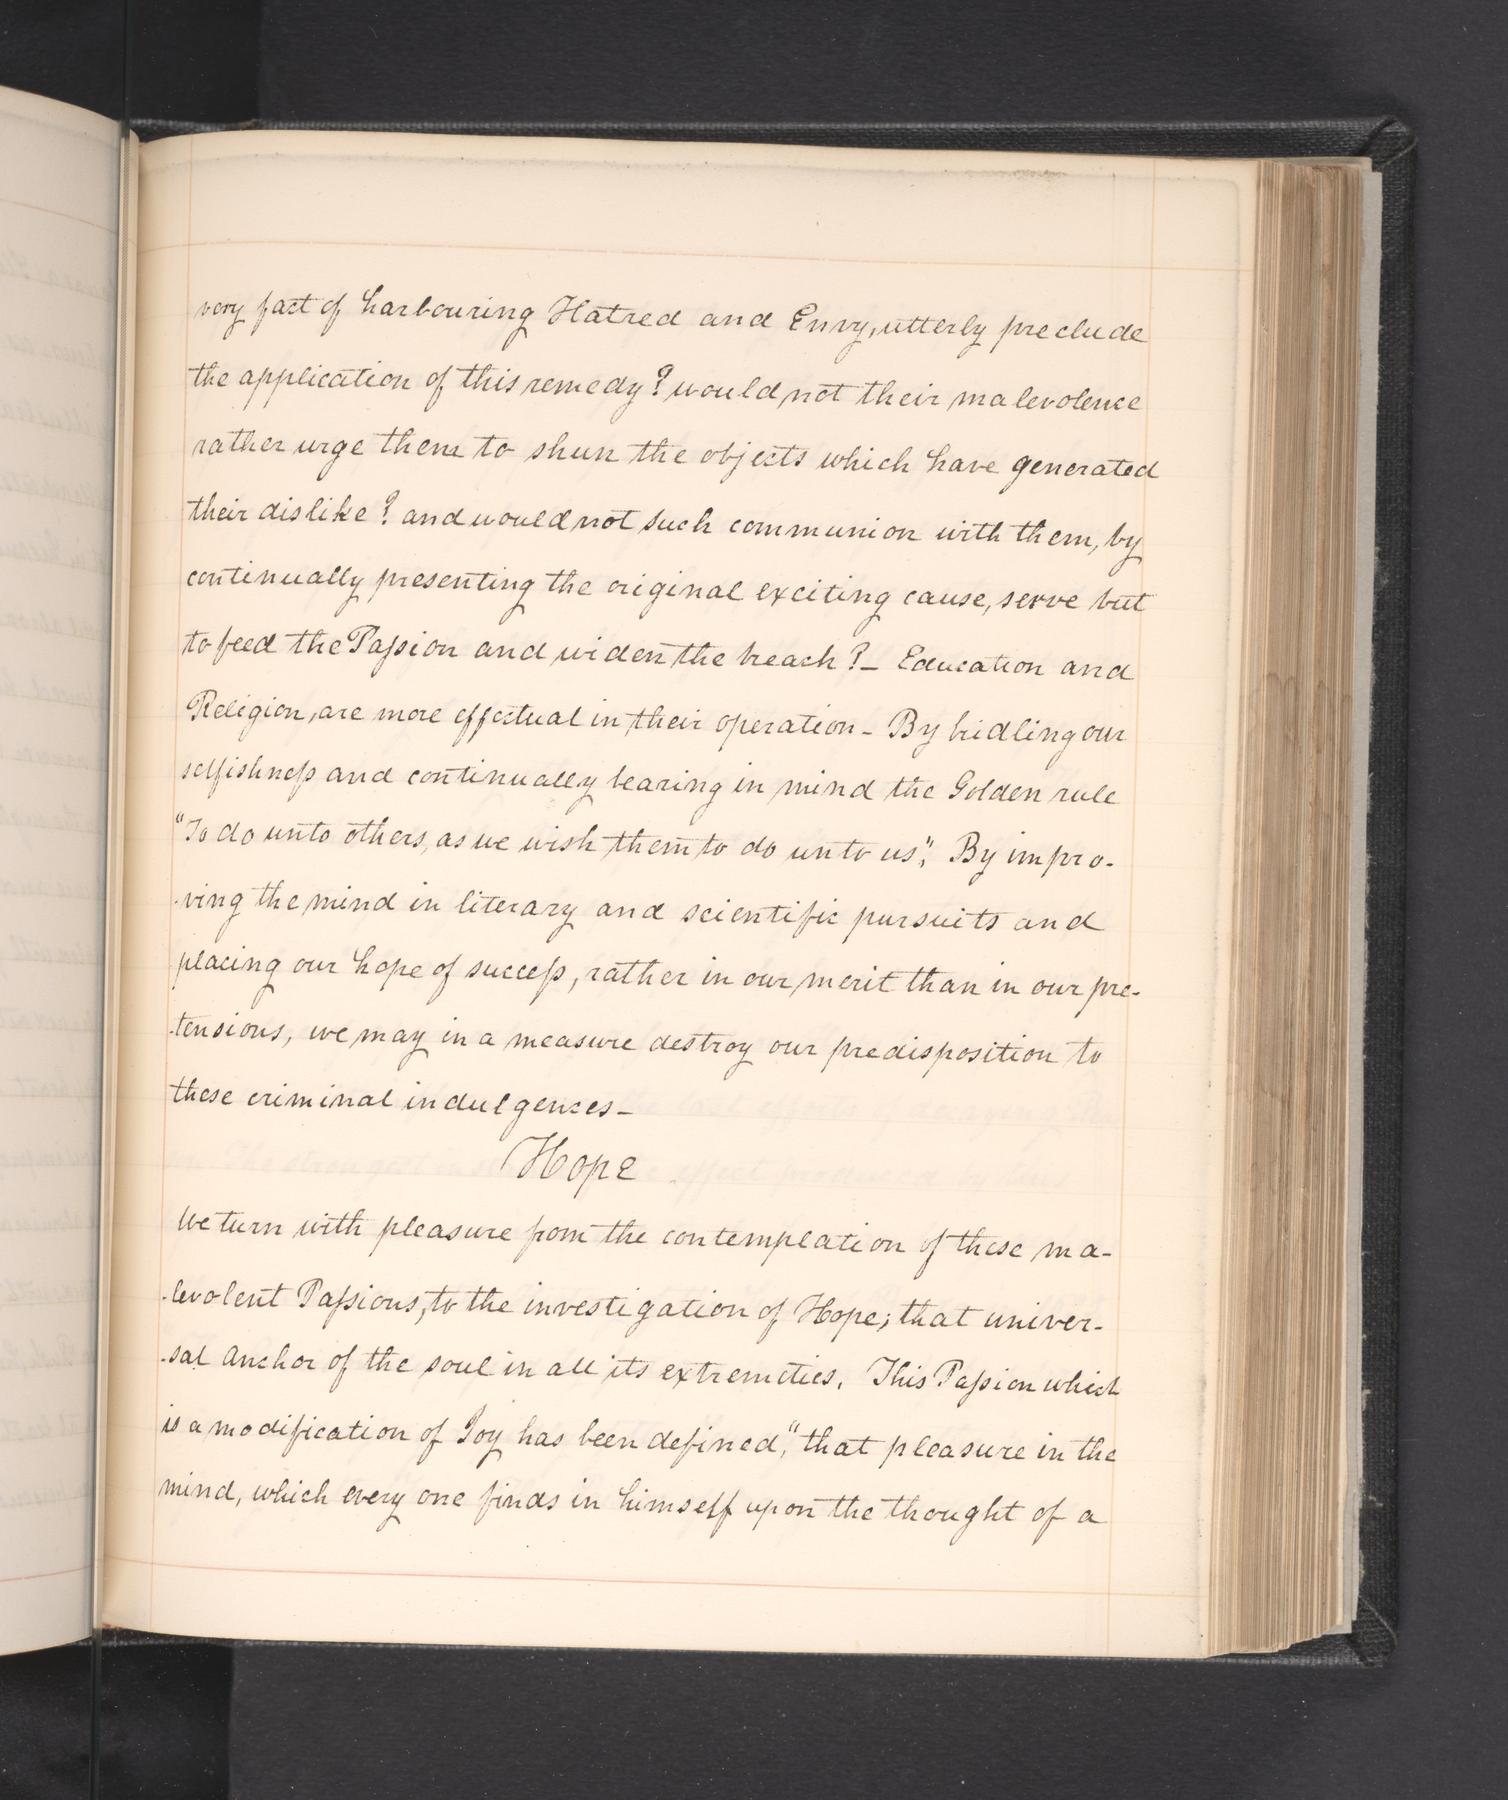 very fact of harbouring Hatred and Envy, utterly preclude
the application of this remedy? would not their malevolence
rather urge them to shun the objects which have generated
their dislike? and would not such communion with them, by
continually presenting the original exciting cause, serve but
to feed the Paſsion and widen the breach?_ Education and
Religion, are more effectual in their operation_ By bridling our
selfishneſs and continually bearing in mind the Golden rule
"To do unto others, as we wish them to do unto us"; By impro-
-ving the mind in literary and scientific pursuits and
placing our hope of succeſs, rather in our merit than in our pre-
-tensions, we may in a measure destroy our predisposition to
these criminal indulgences_
Hope
We turn with pleasure from the contemplation of these ma-
-levolent Paſsions, to the investigation of Hope; that univer-
-sal anchor of the soul in all its extremeties. This Paſsion which
is a modification of Joy has been defined, "that pleasure in the
mind, which every one finds in himself upon the thought of a